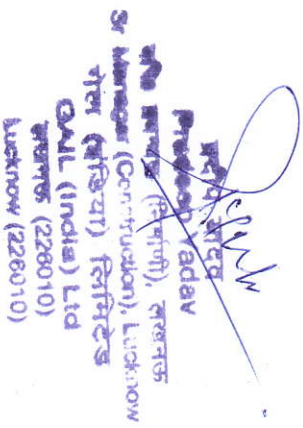 यादव
Yadav
(निर्माणी), लखनऊ
Sr Manager (Construction), Lucknow
गेल (इंडिया) लिमिटेड
GAIL (India) Ltd
लखनऊ (226010)
Lucknow (226010)